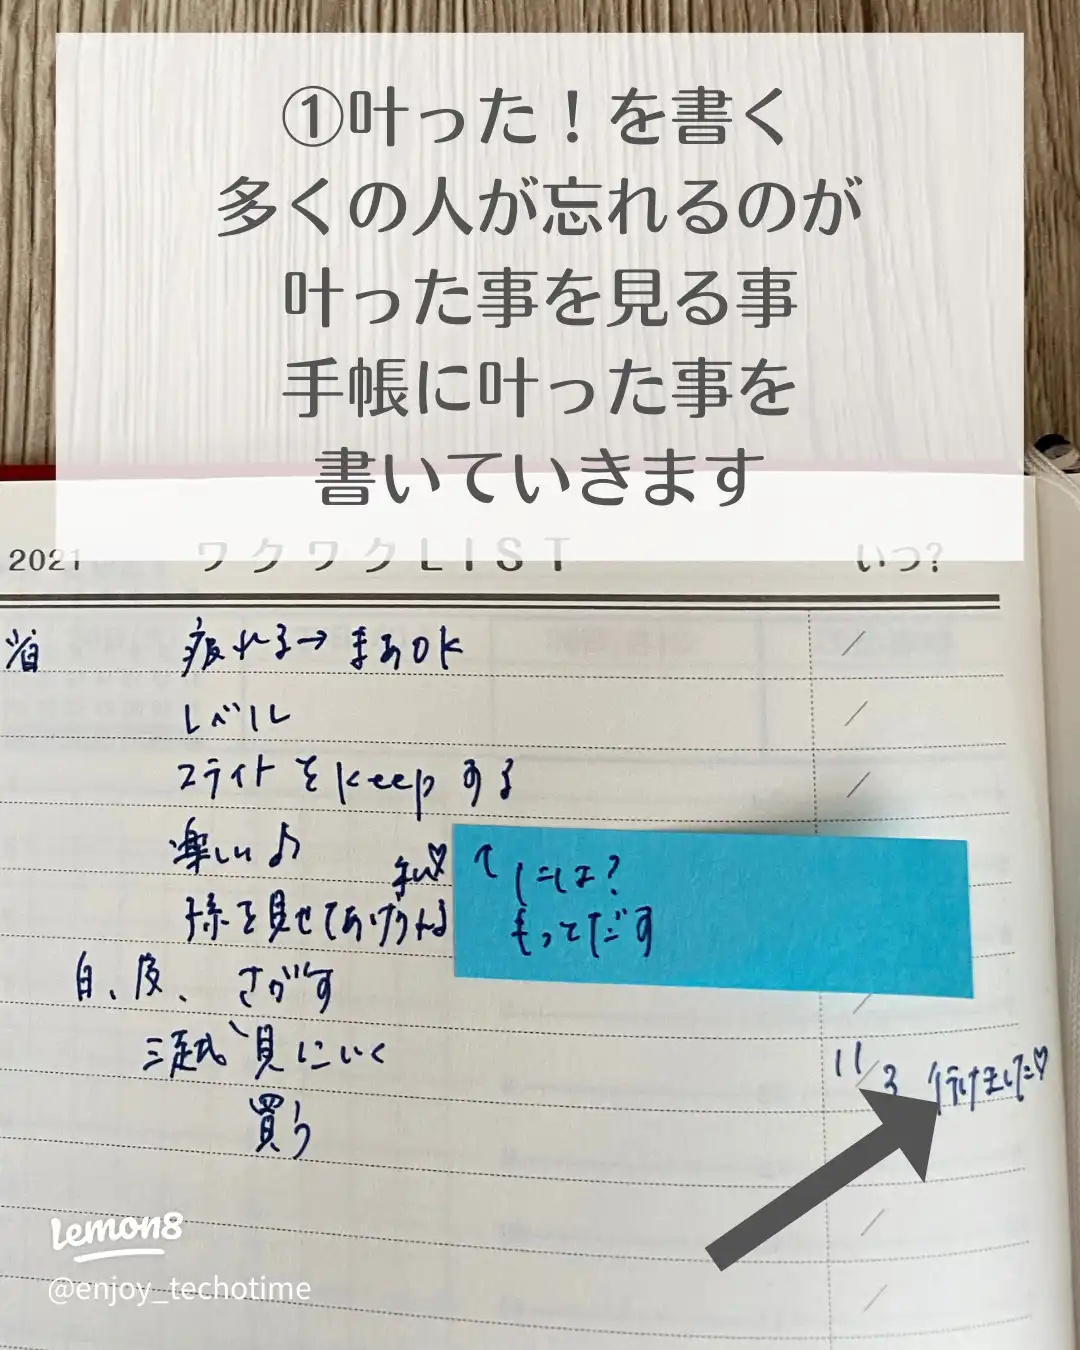 ①叶った！を書く
多くの人が忘れるのが
叶った事を見る事
手帳に叶った事を
書いていきます
2021 ワクワクLIST いつ?
疲れる→まあOK
レベル
をkeepする
楽しい♪
孫を見せてあげ
には?
さがす
見にいく
11/3 行けました♡
買う
lemon8
@enjoy_techotime